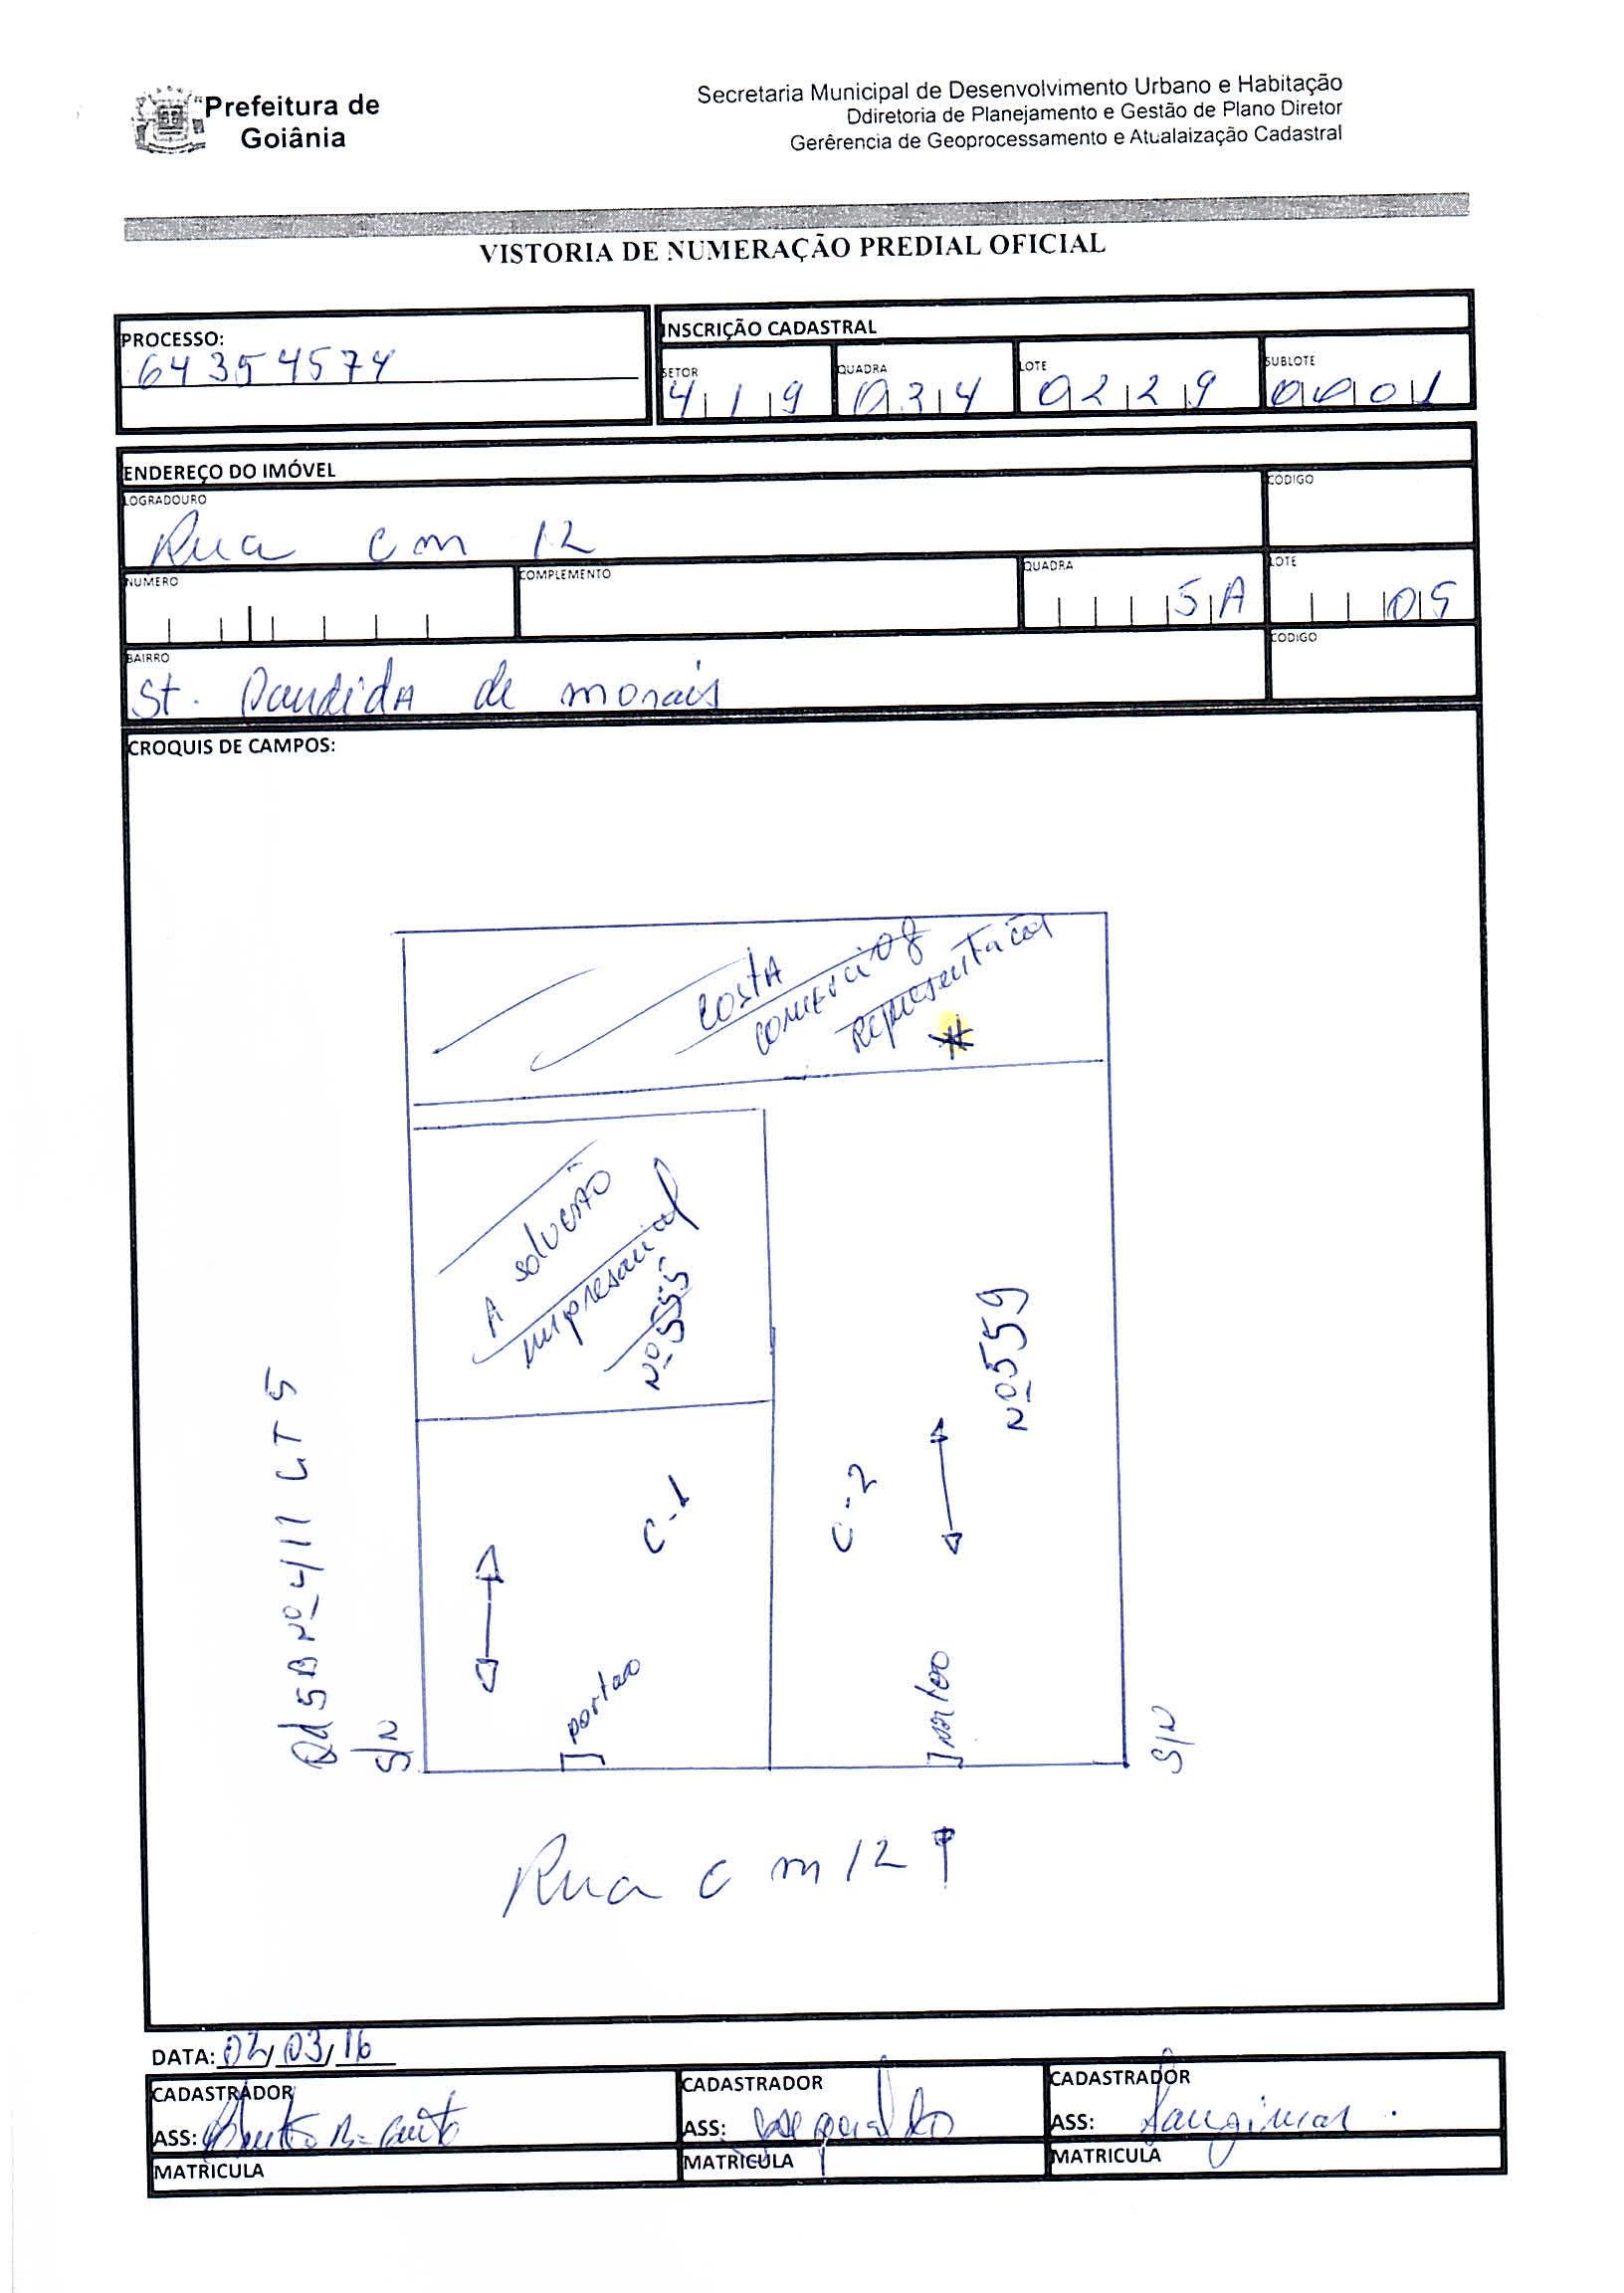 Prefeitura de
Goiânia
Secretaria Municipal de Desenvolvimento Urbano e Habitação
Ddiretoria de Planejamento e Gestão de Plano Diretor
Gerêrencia de Geoprocessamento e Atualaização Cadastral
VISTORIA DE NUMERAÇÃO PREDIAL OFICIAL
PROCESSO:
64354574
INSCRIÇÃO CADASTRAL
SETOR QUADRA LOTE SUBLOTE
419 034 0229 0001
ENDEREÇO DO IMÓVEL
LOGRADOURO CODIGO
Rua cm 12
NUMERO COMPLEMENTO QUADRA LOTE
5A 05
BAIRRO CODIGO
St. de morais
CROQUIS DE CAMPOS:
COSTA
COMERCIO &
Representacoes
*
A SOLUCAO
empresarial
Nº 555
Nº 559
C-1
C-2
Qd 5B Nº 411 LT 5
S/N
portao
portao
S/N
Rua c m 12
DATA: 02/03/16
CADASTRADOR CADASTRADOR CADASTRADOR
ASS: ASS: ASS:
MATRICULA MATRICULA MATRICULA